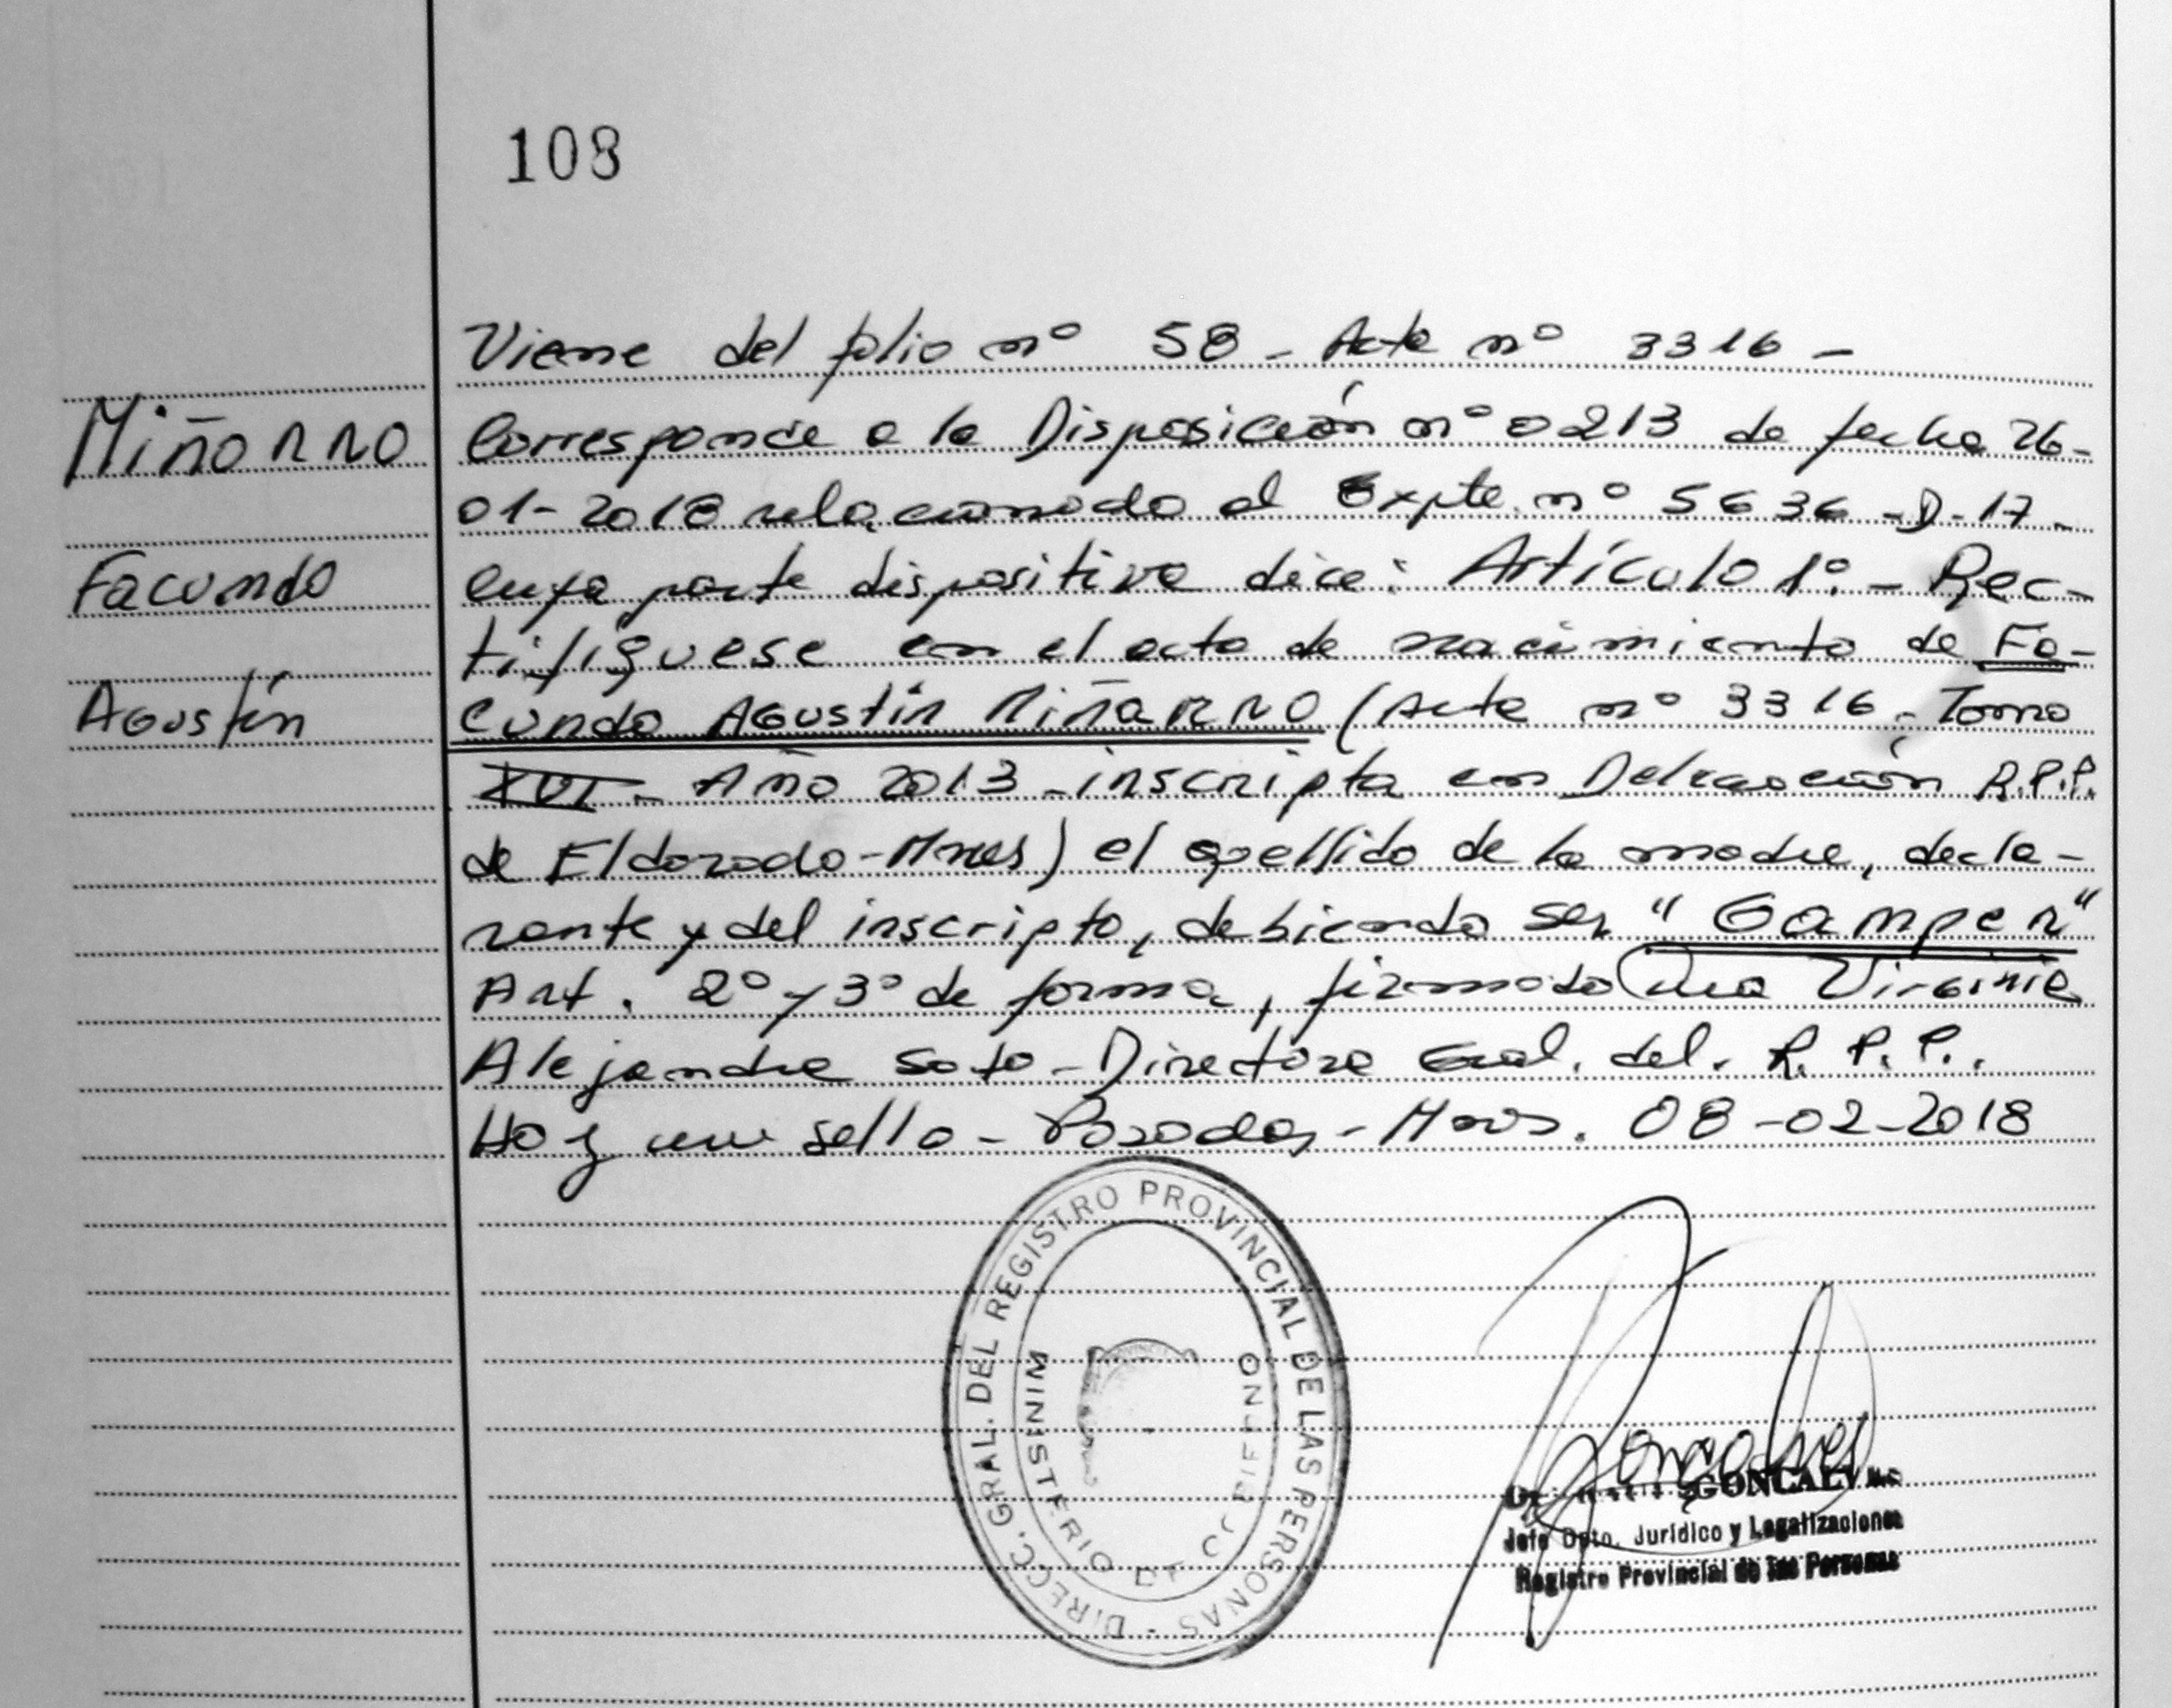 108
Viene del folio nº 58 - Acta nº 3316 -
Miñarro
Corresponde a la Disposición nº 0213 de fecha 26-
01-2018 relacionado al Expte. nº 5636-D-17-
Facundo
cuya parte dispositiva dice: Artículo 1º.- Rec-
tifíquese en el acta de nacimiento de Fa-
Agustín
cundo Agustín Miñarro (Acta nº 3316, Tomo
XVI - Año 2013 - inscripta en Delegación R.P.P.
de Eldorado-Mnes) el apellido de la madre, decla-
rante y del inscripto, debiendo ser "Gamper"
Art. 2º y 3º de forma, firmado Virginia
Alejandra Soto - Directora Gral. del. R.P.P..
Hay un sello - Posadas - Mnes. 08-02-2018
DIRECC. GRAL. DEL REGISTRO PROVINCIAL DE LAS PERSONAS -
MINISTERIO DE
GONCALVES
Jefe Dpto. Jurídico y Legalizaciones
Registro Provincial de las Personas